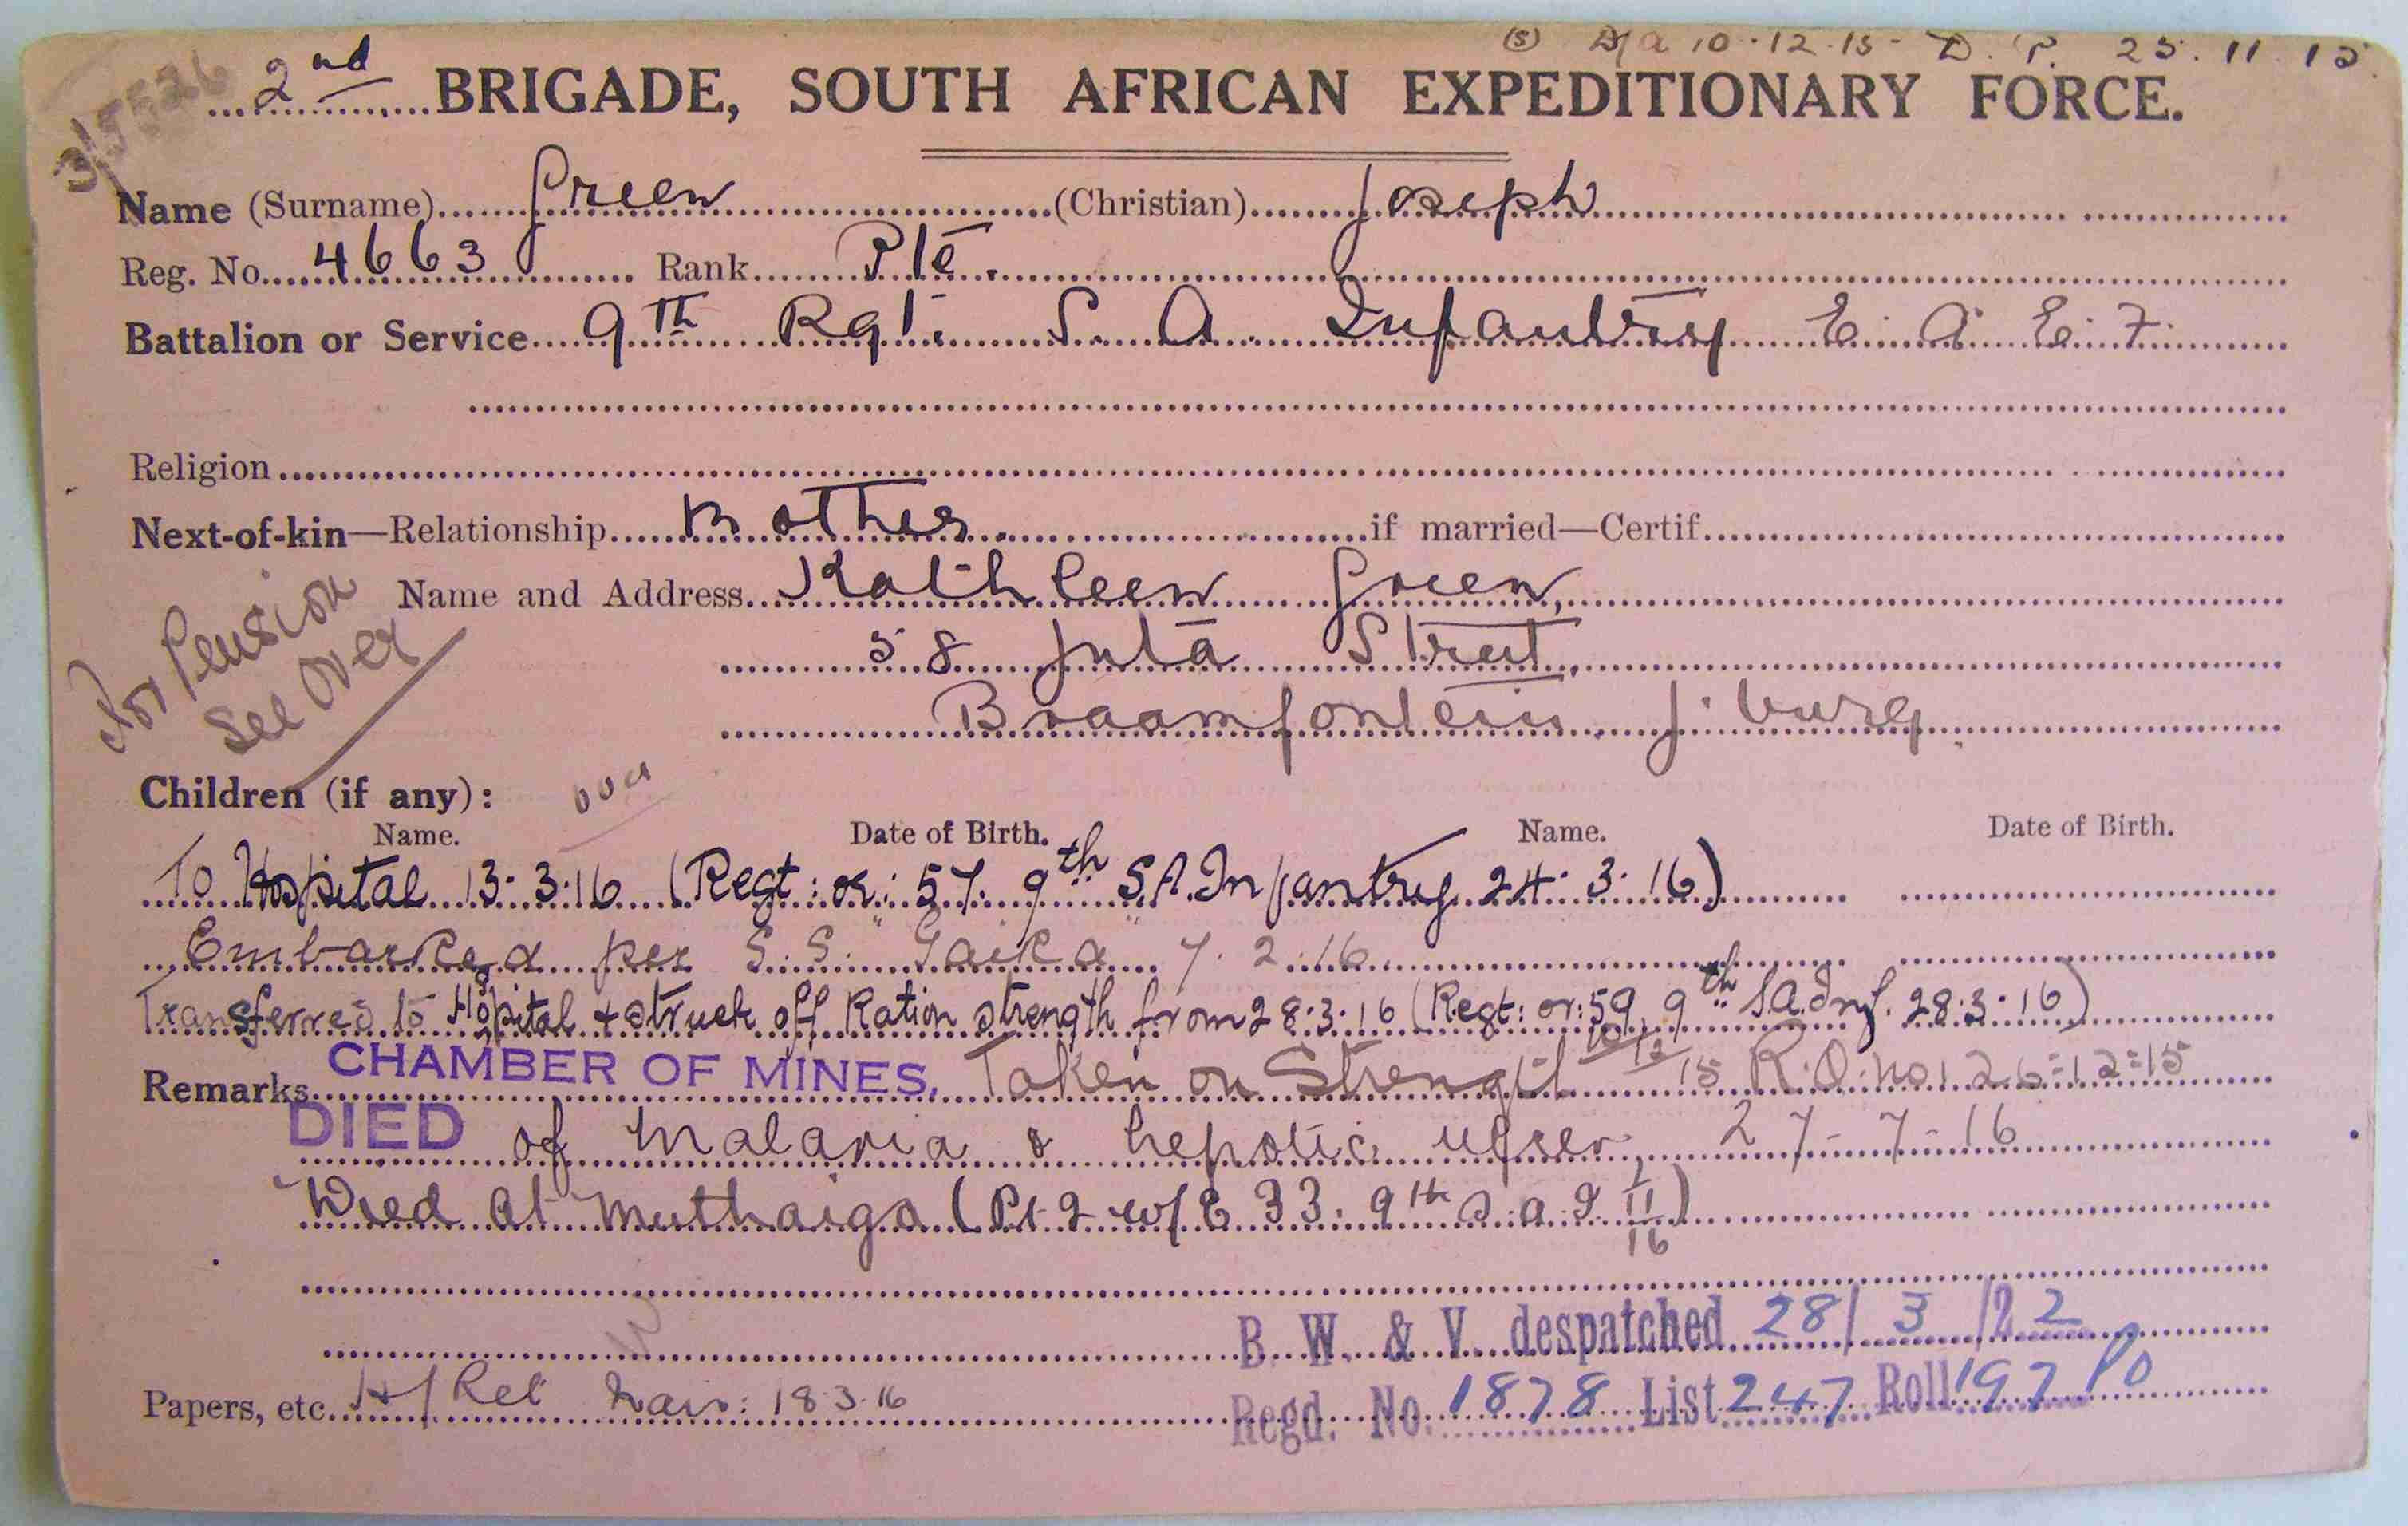 (5) D/A 10.12.15 - D. P. 25.11.15.
3/5526
2nd BRIGADE, SOUTH AFRICAN EXPEDITIONARY FORCE.
Name (Surname) Green (Christian) Joseph
Reg. No. 4663 Rank Pte.
Battalion or Service 9th Rgt. S. A. Infantry E. A. E. F.
Religion
Next-of-kin—Relationship Mother. if married—Certif.
Name and Address Kathleen Green,
58 Juta Street,
Braamfontein J.burg.
For Pension
See Over
Children (if any):
Name. Date of Birth. Name. Date of Birth.
To Hospital 13.3.16 (Regt: or: 57. 9th S.A. Infantry 24.3.16)
Embarked per S.S. "Gaika" 7.2.16
Transferred to Hospital & struck off Ration strength from 28.3.16 (Regt: or: 59, 9th S.A. Inf. 28.3.16)
Remarks CHAMBER OF MINES, Taken on Strength 10/12 15 R.O. no 1 26=12=15
DIED of Malaria & hepatic ulcer, 27-7-16
Died at Muthaiga (Pt 2 w/E 33. 9th S.A.I. 1/11/16)
B. W. & V. despatched 28/3/22
Papers, etc. H/Ret Nair: 18.3.16
Regd. No. 1878 List 247 Roll 197 PO